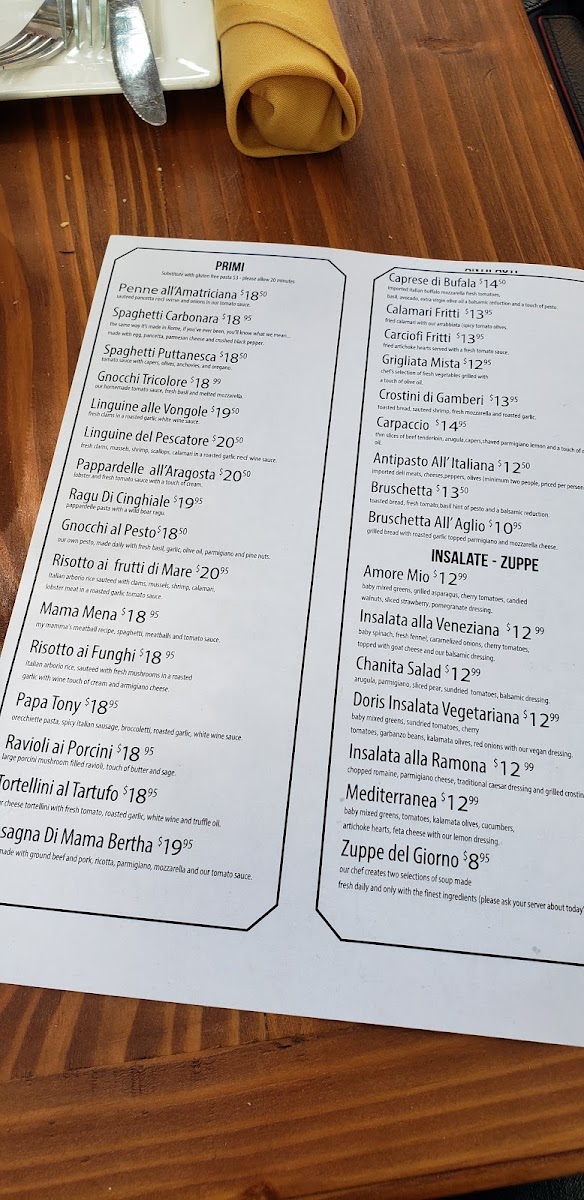 PRIMI
Substitute with gluten free pasta $3 - please allow 20 minutes
Penne all'Amatriciana $18 50
sauteed pancetta red wine and onions in our tomato sauce.
Spaghetti Carbonara $18 95
the same way it's made in Rome, if you've ever been, you'll know what we mean...
made with egg, pancetta, parmesan cheese and crushed black pepper.
Spaghetti Puttanesca $18 50
tomato sauce with capers, olives, anchovies, and oregano.
Gnocchi Tricolore $18 99
our homemade tomato sauce, fresh basil and melted mozzarella
Linguine alle Vongole $19 50
fresh clams in a roasted garlic white wine sauce.
Linguine del Pescatore $20 50
fresh clams, mussels, shrimp, scallops, calamari in a roasted garlic red wine sauce.
Pappardelle all'Aragosta $20 50
lobster and fresh tomato sauce with a touch of cream.
Ragu Di Cinghiale $19 95
pappardelle pasta with a wild boar ragu.
Gnocchi al Pesto $18 50
our own pesto, made daily with fresh basil, garlic, olive oil, parmigiano and pine nuts.
Risotto ai frutti di Mare $20 95
Italian arborio rice sauteed with clams, mussels, shrimp, calamari,
lobster meat in a roasted garlic tomato sauce.
Mama Mena $18 95
my mamma's meatball recipe, spaghetti, meatballs and tomato sauce.
Risotto ai Funghi $18 95
Italian arborio rice, sauteed with fresh mushrooms in a roasted
garlic with wine touch of cream and armigiano cheese.
Papa Tony $18 95
orecchiette pasta, spicy Italian sausage, broccoletti, roasted garlic, white wine sauce.
Ravioli ai Porcini $18 95
large porcini mushroom filled ravioli, touch of butter and sage.
Tortellini al Tartufo $18 95
cheese tortellini with fresh tomato, roasted garlic, white wine and truffle oil.
sagna Di Mama Bertha $19 95
made with ground beef and pork, ricotta, parmigiano, mozzarella and our tomato sauce.
ANTIPASTI
Caprese di Bufala $14 50
imported Italian buffalo mozzarella fresh tomatoes,
basil, avocado, extra virgin olive oil a balsamic reduction and a touch of pesto.
Calamari Fritti $13 95
fried calamari with our arrabbiata (spicy tomato) olives.
Carciofi Fritti $13 95
fried artichoke hearts served with a fresh tomato sauce.
Grigliata Mista $12 95
chef's selection of fresh vegetables grilled with
a touch of olive oil.
Crostini di Gamberi $13 95
toasted bread, sauteed shrimp, fresh mozzarella and roasted garlic.
Carpaccio $14 95
thin slices of beef tenderloin, arugula, capers, shaved parmigiano lemon and a touch of
oil.
Antipasto All'Italiana $12 50
imported deli meats, cheeses, peppers, olives (minimum two people, priced per person
Bruschetta $13 50
toasted bread, fresh tomato, basil hint of pesto and a balsamic reduction.
Bruschetta All'Aglio $10 95
grilled bread with roasted garlic topped parmigiano and mozzarella cheese.
INSALATE - ZUPPE
Amore Mio $12 99
baby mixed greens, grilled asparagus, cherry tomatoes, candied
walnuts, sliced strawberry, pomegranate dressing.
Insalata alla Veneziana $12 99
baby spinach, fresh fennel, caramelized onions, cherry tomatoes,
topped with goat cheese and our balsamic dressing.
Chanita Salad $12 99
arugula, parmigiano, sliced pear, sundried tomatoes, balsamic dressing.
Doris Insalata Vegetariana $12 99
baby mixed greens, sundried tomatoes, cherry
tomatoes, garbanzo beans, kalamata olives, red onions with our vegan dressing.
Insalata alla Ramona $12 99
chopped romaine, parmigiano cheese, traditional caesar dressing and grilled crostin
Mediterranea $12 99
baby mixed greens, tomatoes, kalamata olives, cucumbers,
artichoke hearts, feta cheese with our lemon dressing.
Zuppe del Giorno $8 95
our chef creates two selections of soup made
fresh daily and only with the finest ingredients (please ask your server about today'